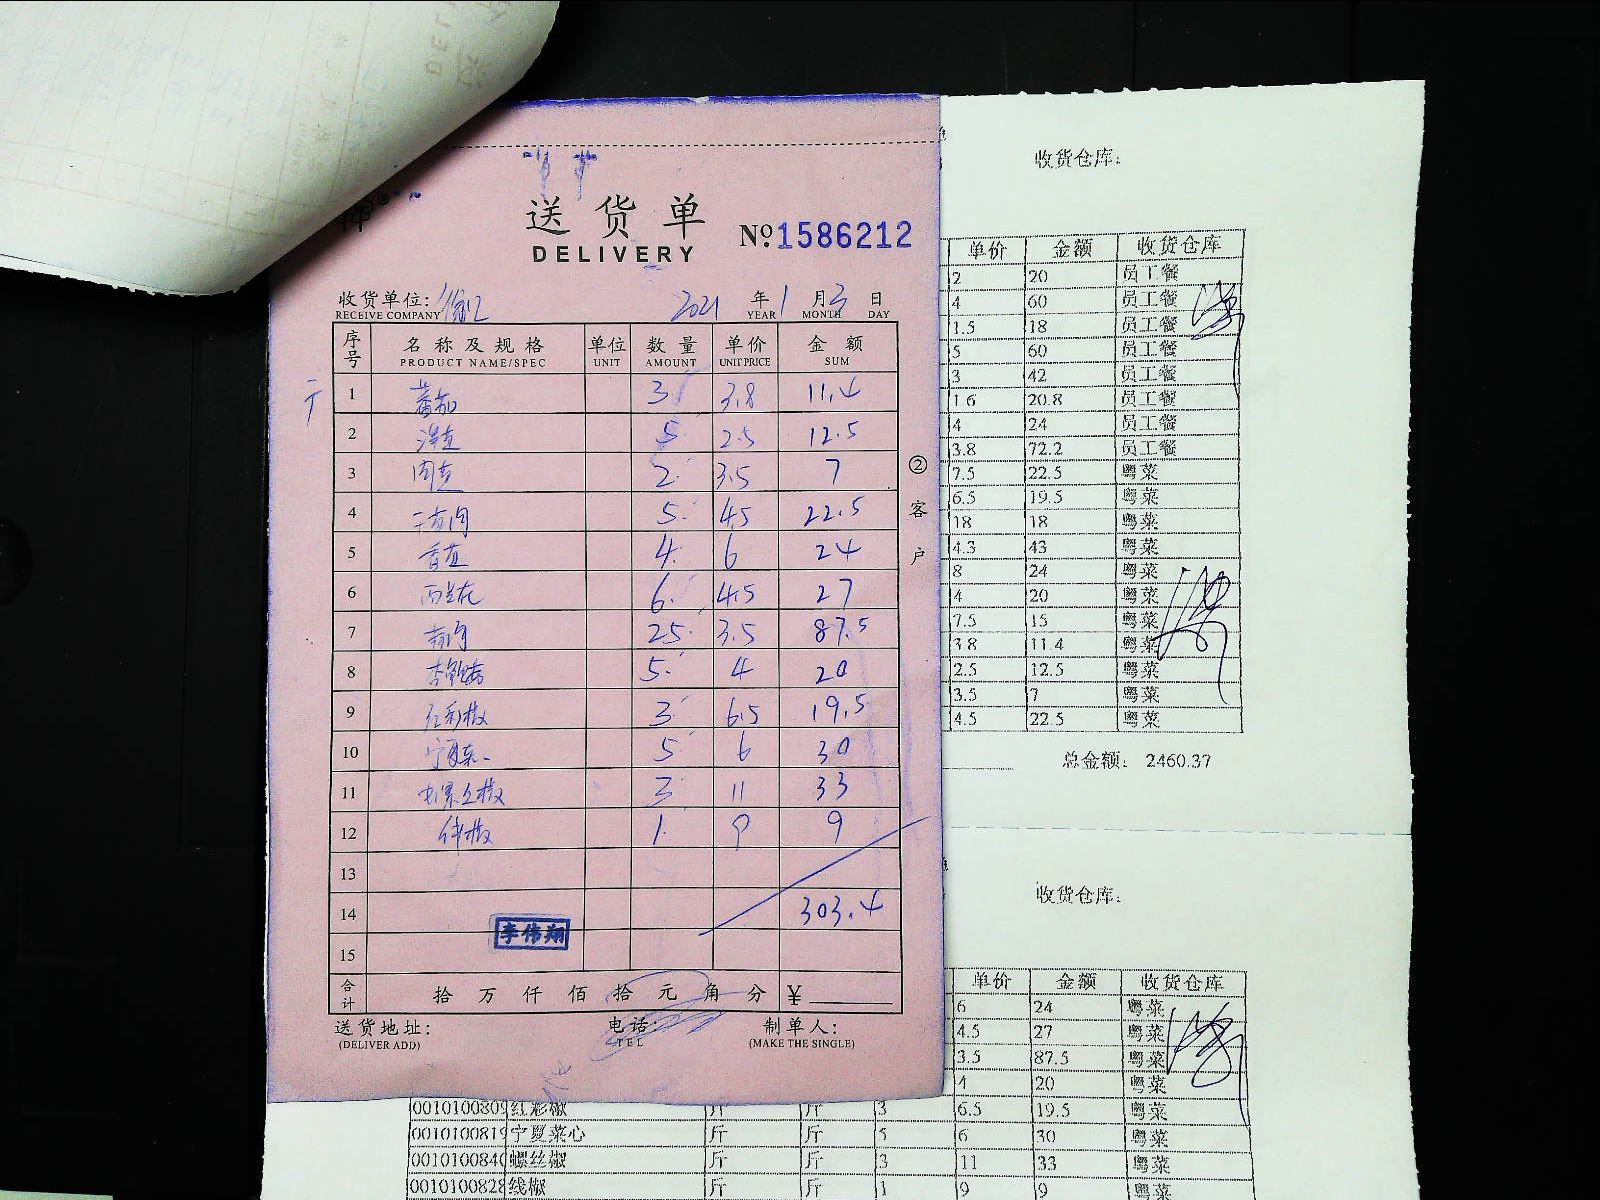 送货单
DELIVERY
№1586212
收货单位:
RECEIVE COMPANY
2021 年 1 月 3 日
YEAR MONTH DAY
序号 名称及规格 单位 数量 单价 金额
PRODUCT NAME/SPEC UNIT AMOUNT UNIT PRICE SUM
1 番茄 3 3.8 11.4
2 洋芫 5 2.5 12.5
3 肉芫 2 3.5 7
4 5 4.5 22.5
5 香芫 4 6 24
6 西兰花 6 4.5 27
7 25 3.5 87.5
8 5 4 20
9 红彩椒 3 6.5 19.5
10 宁夏菜心 5 6 30
11 螺丝椒 3 11 33
12 线椒 1 9 9
13
14 303.4
李伟翔
15
合计 拾 万 仟 佰 拾 元 角 分 ¥
送货地址: 电话: 制单人:
(DELIVER ADD) TEL (MAKE THE SINGLE)
②客户
收货仓库:
单价 金额 收货仓库
2 20 员工餐
4 60 员工餐
1.5 18 员工餐
5 60 员工餐
3 42 员工餐
1.6 20.8 员工餐
4 24 员工餐
3.8 72.2 员工餐
7.5 22.5 粤菜
6.5 19.5 粤菜
18 18 粤菜
4.3 43 粤菜
8 24 粤菜
4 20 粤菜
7.5 15 粤菜
3.8 11.4 粤菜
2.5 12.5 粤菜
3.5 7 粤菜
4.5 22.5 粤菜
总金额: 2460.37
收货仓库:
单价 金额 收货仓库
6 24 粤菜
4.5 27 粤菜
3.5 87.5 粤菜
4 20 粤菜
0010100809 红彩椒 斤 斤 3 6.5 19.5 粤菜
0010100819 宁夏菜心 斤 斤 5 6 30 粤菜
001010084 螺丝椒 斤 斤 3 11 33 粤菜
0010100828 线椒 斤 斤 1 9 9 粤菜